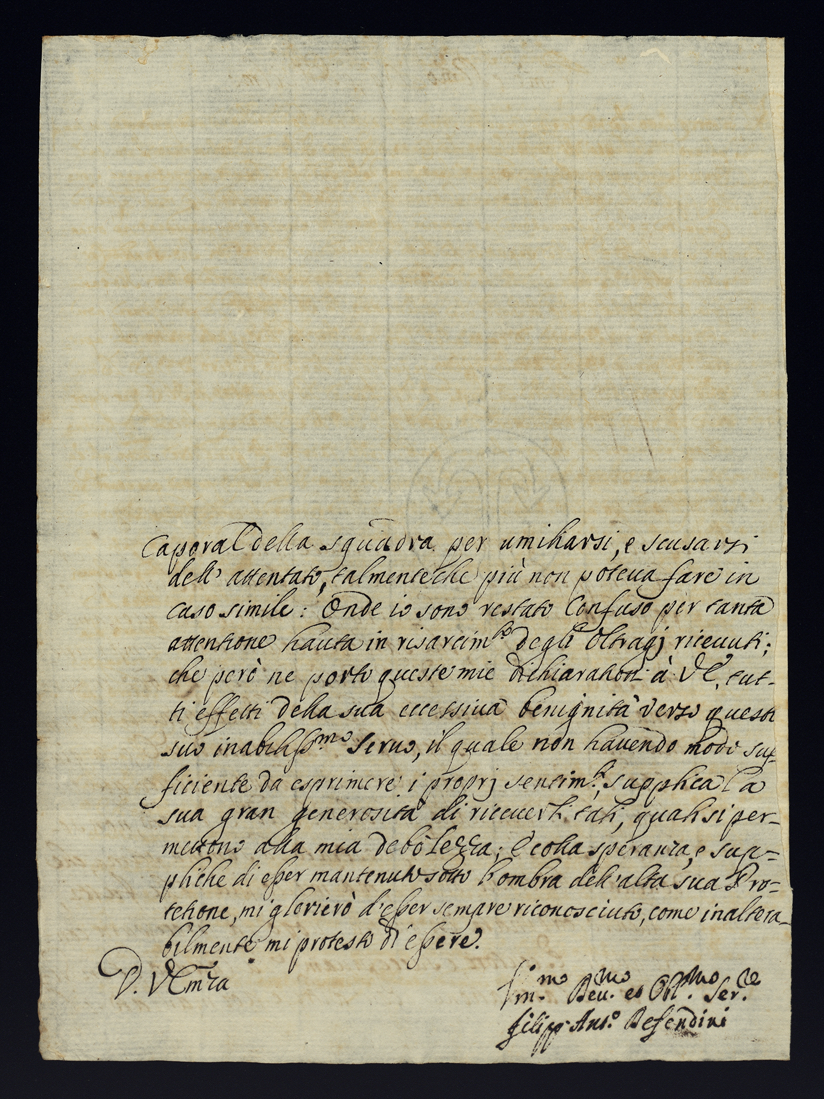 Caporal della squadra per umiliarsi, e scusarsi
dell' attentato, talmenteche più non poteva fare in
caso simile: Onde io sono restato Confuso per tanta
attentione hauta in risarcim.to degli Oltragj riceuuti;
che però ne porto queste mie dichiarationi à VE, tut-
ti effetti della sua eccessiua benignità verso questo
suo inabiliss.mo Seruo, il quale non hauendo modo suf-
ficiente da esprimere i proprj sentim.ti, supplica la
sua gran generosità di riceuerli tali, quali si per-
mettono alla mia debolezza; E colla speranza, e sup-
pliche di esser mantenuto sotto l'ombra dell'alta sua Pro-
tetione, mi glorierò d'esser sempre riconosciuto, come inaltera-
bilmente mi protesto di essere.
D. VEmza
Um.mo Deu.mo et Obl.mo Ser.re
Filipp Ant.o Defendini